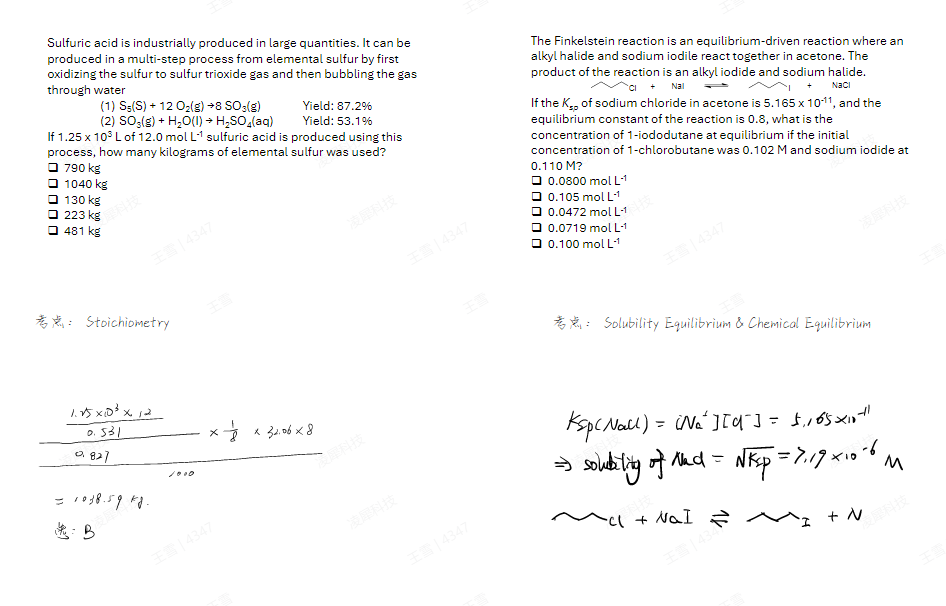 Sulfuric acid is industrially produced in large quantities. It can be
produced in a multi-step process from elemental sulfur by first
oxidizing the sulfur to sulfur trioxide gas and then bubbling the gas
through water
(1) S₈(S) + 12 O₂(g) →8 SO₃(g) Yield: 87.2%
(2) SO₃(g) + H₂O(l) → H₂SO₄(aq) Yield: 53.1%
If 1.25 x 10³ L of 12.0 mol L⁻¹ sulfuric acid is produced using this
process, how many kilograms of elemental sulfur was used?
☐ 790 kg
☐ 1040 kg
☐ 130 kg
☐ 223 kg
☐ 481 kg
考点: Stoichiometry
1.25 ×10³ × 12
0.531
× 1/8 × 32.06 × 8
0.827
1000
= 1038.59 kg.
选: B
The Finkelstein reaction is an equilibrium-driven reaction where an
alkyl halide and sodium iodile react together in acetone. The
product of the reaction is an alkyl iodide and sodium halide.
Cl + NaI ⇌ I + NaCl
If the Kₛₚ of sodium chloride in acetone is 5.165 x 10⁻¹¹, and the
equilibrium constant of the reaction is 0.8, what is the
concentration of 1-iododutane at equilibrium if the initial
concentration of 1-chlorobutane was 0.102 M and sodium iodide at
0.110 M?
☐ 0.0800 mol L⁻¹
☐ 0.105 mol L⁻¹
☐ 0.0472 mol L⁻¹
☐ 0.0719 mol L⁻¹
☐ 0.100 mol L⁻¹
考点: Solubility Equilibrium & Chemical Equilibrium
Ksp(NaCl) = [Na⁺][Cl⁻] = 5.165×10⁻¹¹
⇒ solubility of NaCl = √Ksp = 7.19 ×10⁻⁶ M
Cl + NaI ⇌ I + N
王雪 | 4347
凌犀科技